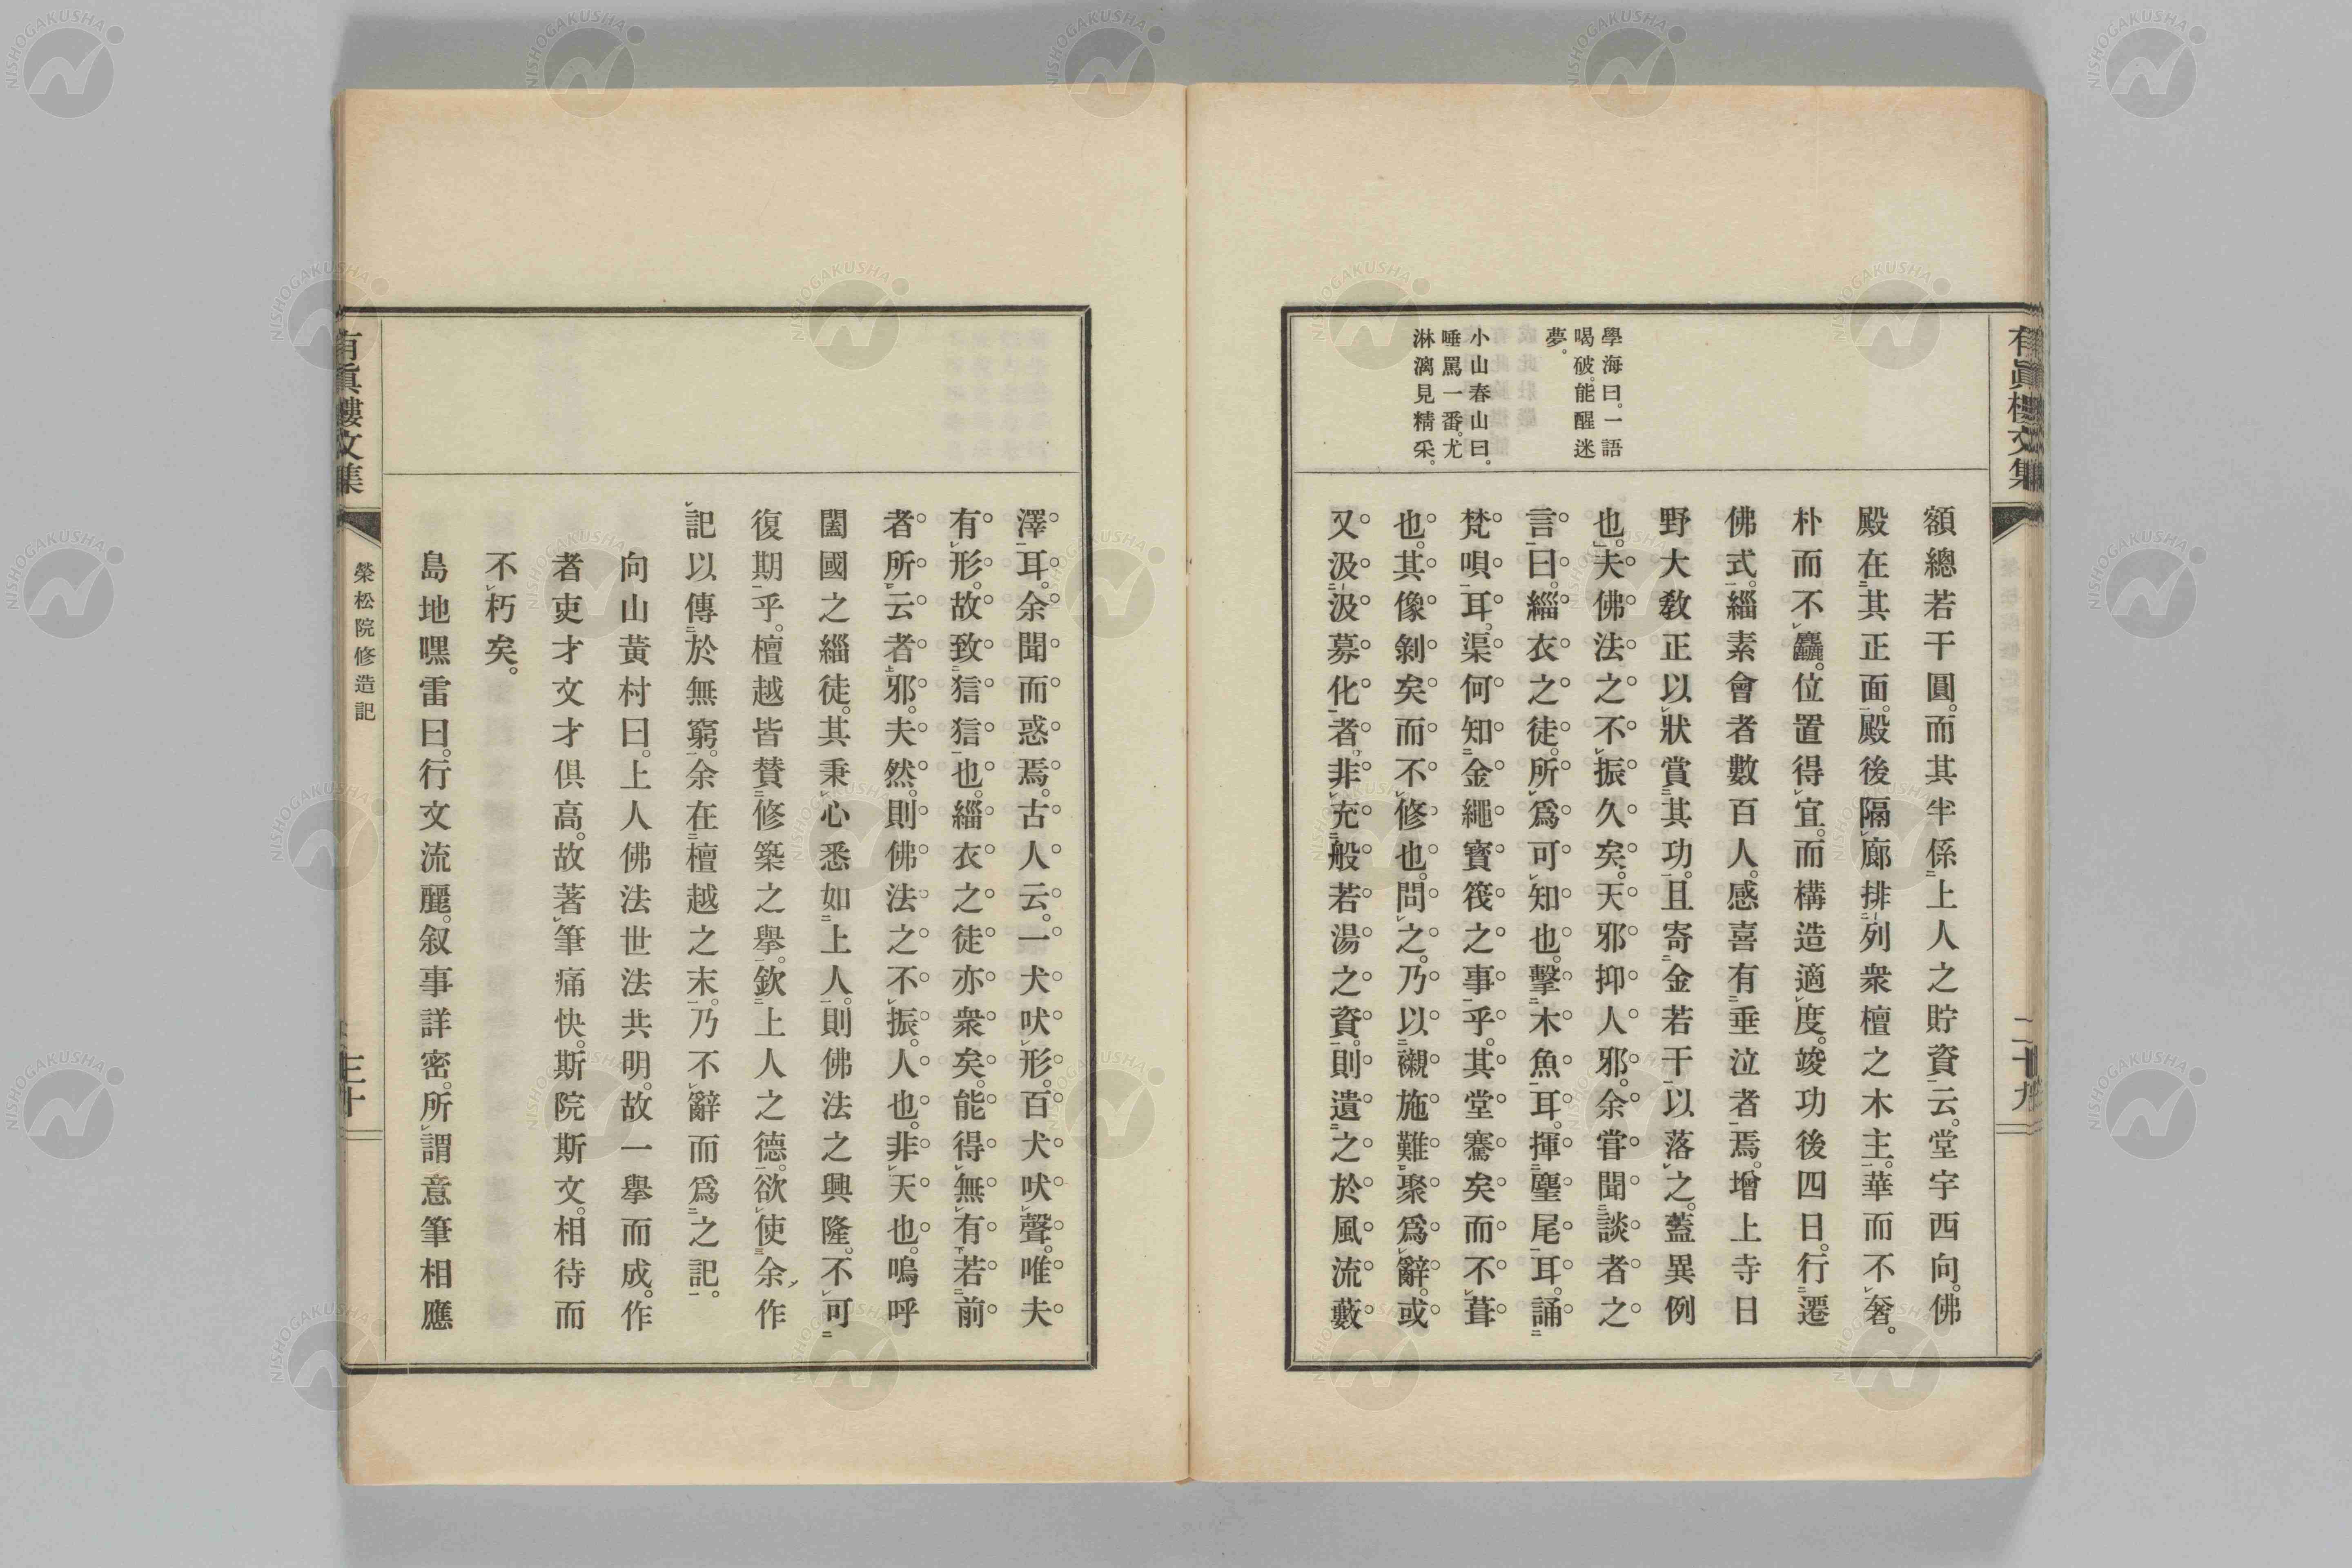 有眞樓文集
二十九
學海曰。一語
喝破。能醒迷
夢。
小山春山曰。
唾罵一番。尤
淋漓見精采。
額總若干圓。而其半係上人之貯資云。堂宇西向。佛
殿在其正面。殿後隔廊排列衆檀之木主。華而不奢。
朴而不麤。位置得宜。而構造適度。竣功後四日。行遷
佛式。緇素會者數百人。感喜有垂泣者焉。增上寺日
野大敎正以狀賞其功。且寄金若干以落之。蓋異例
也。夫佛法之不振久矣。天邪抑人邪。余甞聞談者之
言。曰。緇衣之徒。所爲可知也。擊木魚耳。揮麈尾耳。誦
梵唄耳。渠何知金繩寶筏之事乎。其堂騫矣而不葺
也。其像剝矣而不修也。問之。乃以襯施難聚爲辭。或
又汲汲募化者。非充般若湯之資。則遺之於風流藪
澤耳。余聞而惑焉。古人云。一犬吠形。百犬吠聲。唯夫
有形。故致狺狺也。緇衣之徒亦衆矣。能得無有若前
者所云者邪。夫然。則佛法之不振。人也。非天也。嗚呼
闔國之緇徒。其秉心悉如上人。則佛法之興隆。不可
復期乎。檀越皆賛修築之擧。欽上人之德。欲使余作
記以傳於無窮。余在檀越之末。乃不辭而爲之記。
向山黃村曰。上人佛法世法共明。故一擧而成。作
者吏才文才俱高。故著筆痛快。斯院斯文。相待而
不朽矣。
島地嘿雷曰。行文流麗。叙事詳密。所謂意筆相應
有眞樓文集
榮松院修造記
三十
NISHOGAKUSHA